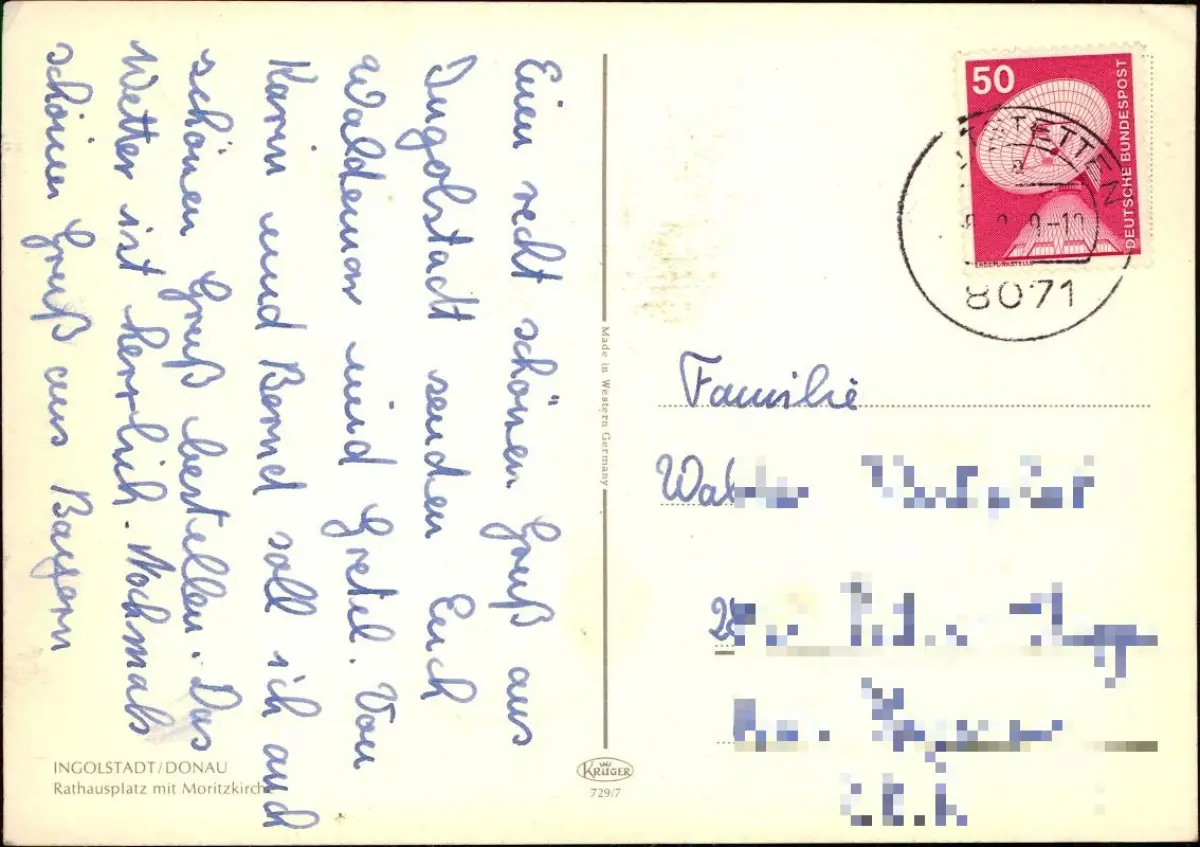 Einen recht schönen Gruß aus
Ingolstadt senden Euch
Waldemar und Gretel. Von
Karin und Bernd soll ich auch
schönen Gruß bestellen. Das
Wetter ist herrlich. Nochmals
schönen Gruß aus Bayern
INGOLSTADT/DONAU
Rathausplatz mit Moritzkirche
Made in Western Germany
KRÜGER
729/7
50
DEUTSCHE BUNDESPOST
ERDEFUNKSTELLE
8071
Familie